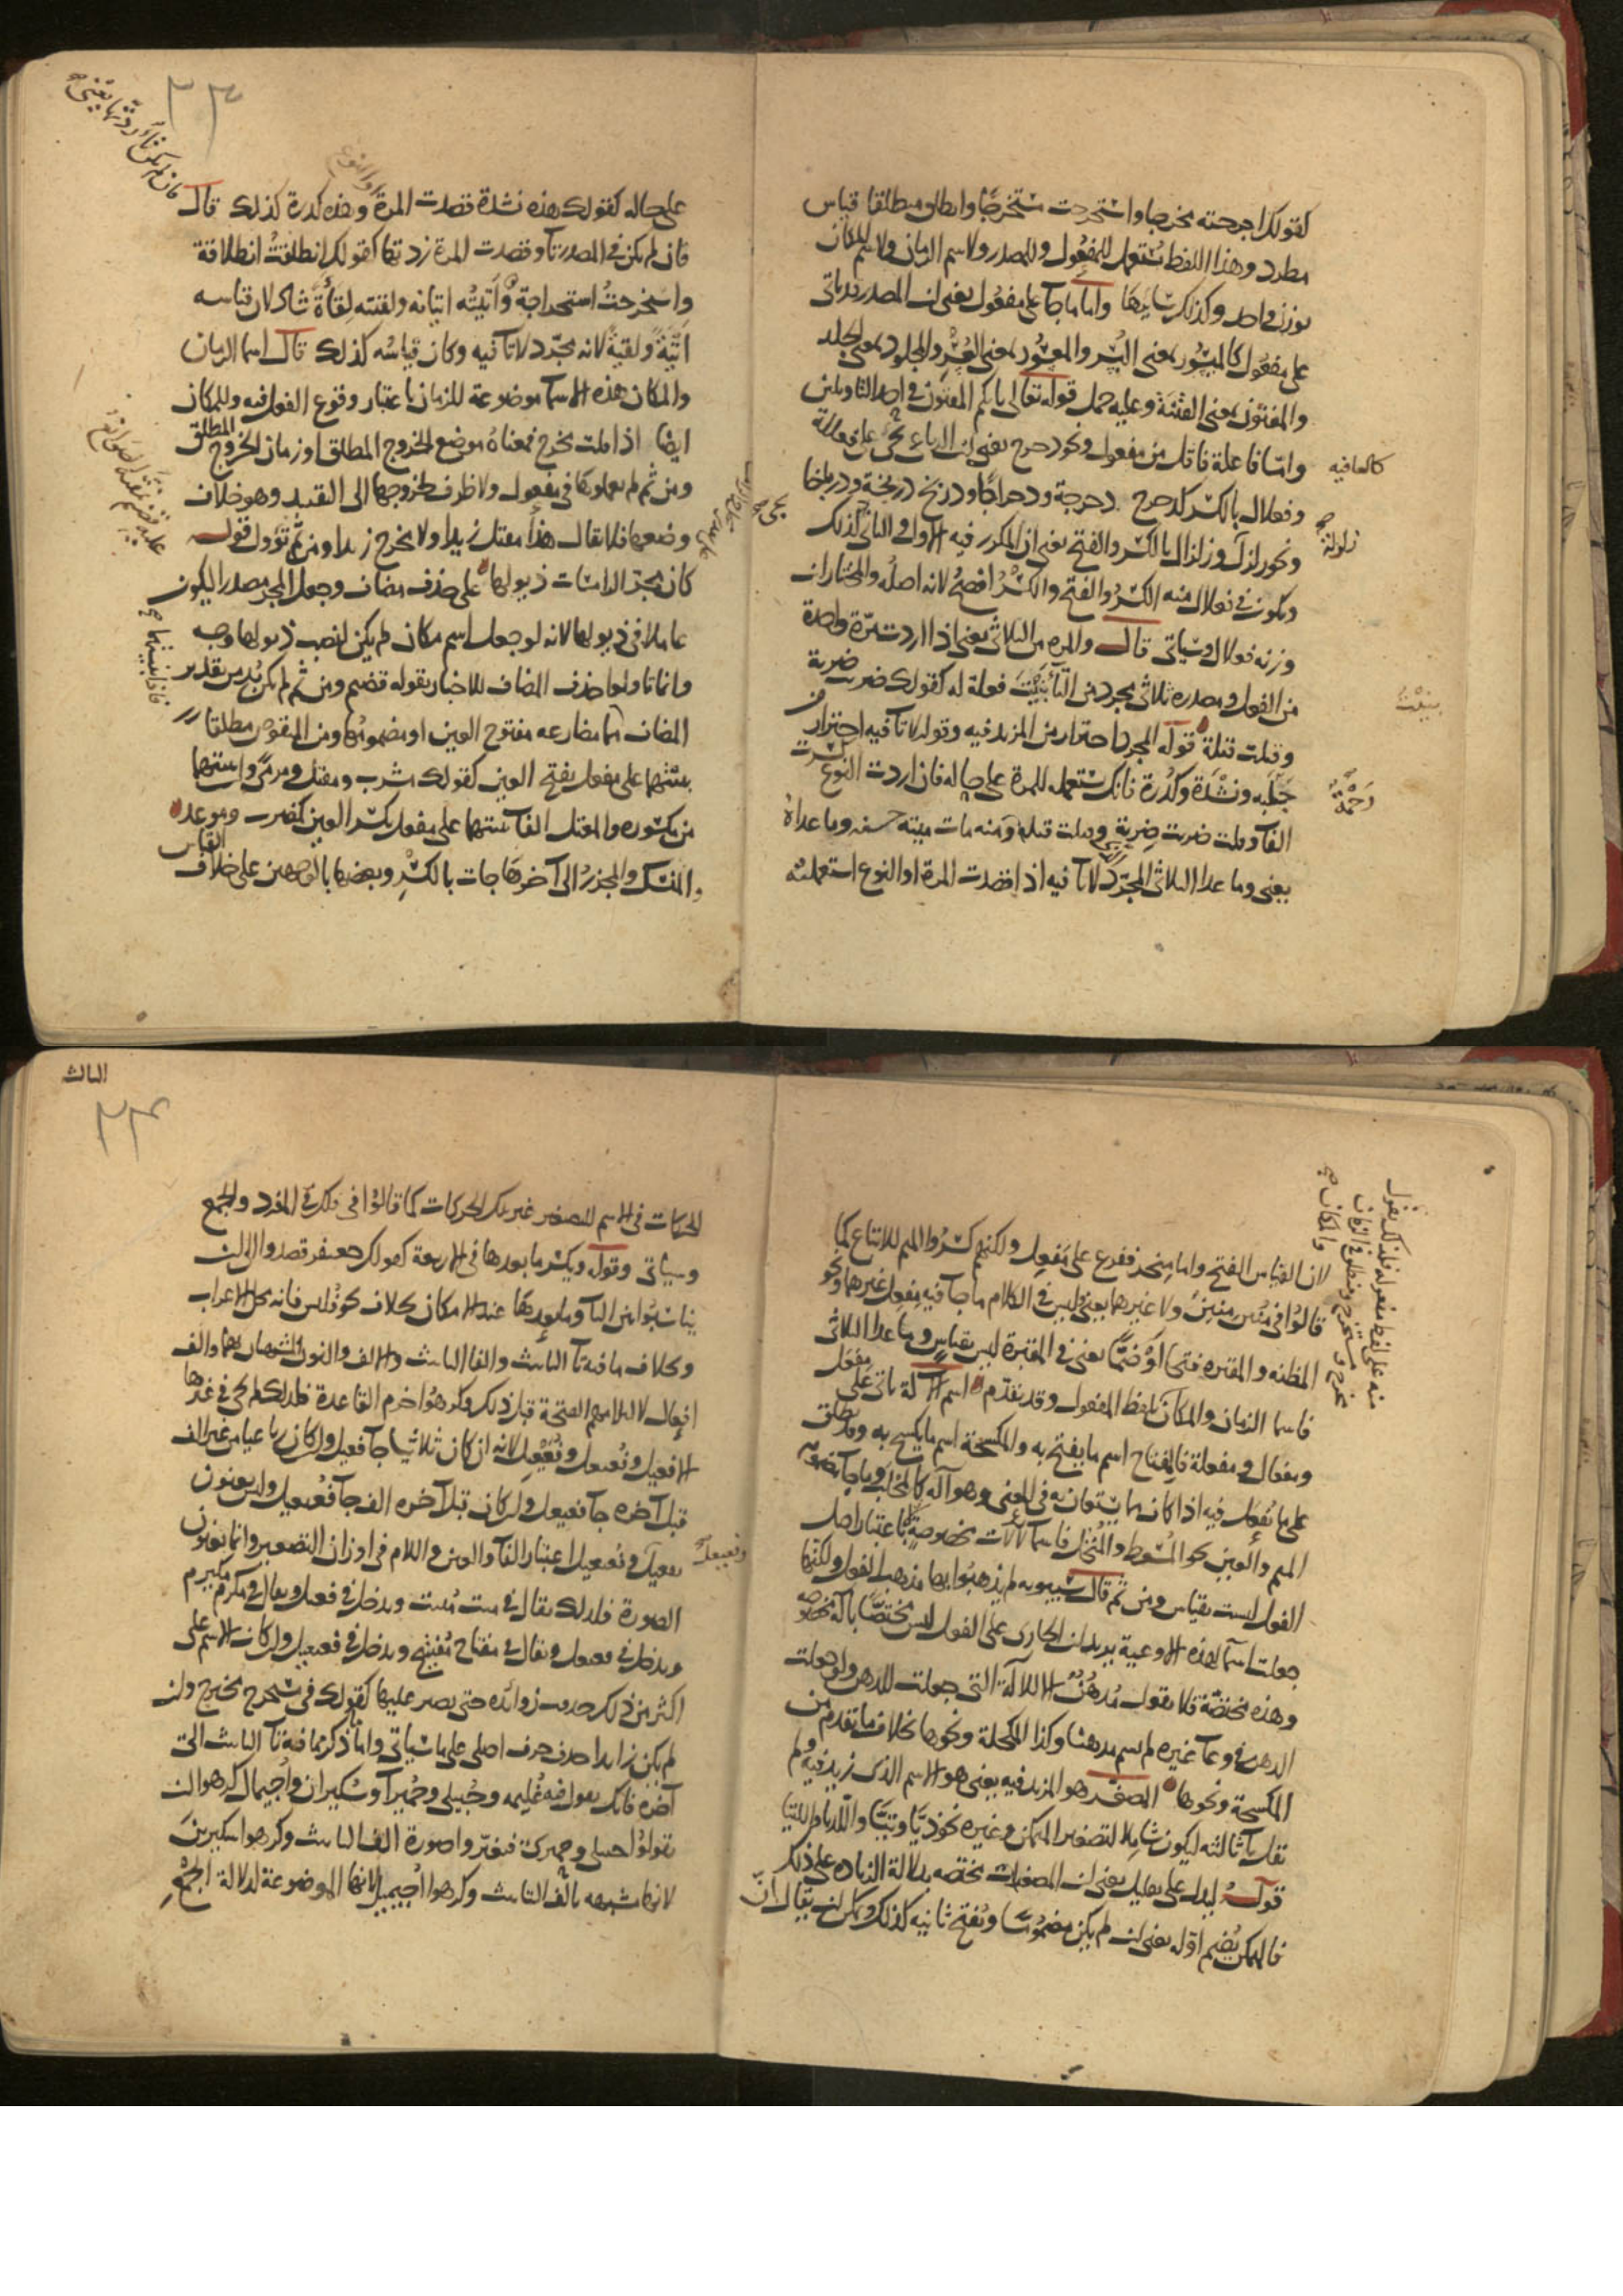 كقولك اخرجته مخرجا واستخرجت مستخرجا وانطلق منطلقا قياس
مطرد وهذا اللفظ يستعمل للمفعول وللمصدر ولاسم الزمان ولاسم المكان
بوزن واحد وكذلك سايرها واما ما جآ على مفعول يعنى ان المصدر قد ياتى
على مفعول كالميسور بمعنى اليسر والمعسور بمعنى العسر والمجلود بمعنى الجلد
والمفتون بمعنى الفتنة وعليه حمل قوله تعالى بايكم المفتون فى احد التاويلين
وامّا فاعلة فاقل من مفعول ونحو دحرج يعنى ان الرباعى يجئ على فعللة
كالعافيه
وفعلال بالكسر كدحرج دحرجة ودحراجا ودربخ دربخة ودرباخا
ونحو زلزل وزلزال بالكسر والفتح يعنى ان المكرر فيه الاول والثانى كذلك
زلزلة صح
ويكون فى فعلال منه الكسر والفتح والكسر افصح لانه اصله والمختار ان
وزنه فعلال وسياتى قال والمره من الثلاثى يعنى اذا اردت مرّة واحدة
من الفعل ومصدره ثلاثى مجرد من التأنيث فعلة له كقولك ضربت ضربة
وقتلت قتلة قوله المجرد احتراز من المزيد فيه وقوله لا تآ فيه احتراز من
جَلَبه ونشْدَة وكدْرة فانك تستعمله للمرة على حاله فان اردت النوع كسرت
رَحْمَة
الفآ وقلت ضربت ضِربة وقتلت قتلة ومنه مات ميتة حسنه وما عداه
يعنى وما عدا الثلاثى المجرّد لا تآ فيه اذا قصدت المرة او النوع استعملته
على حاله كقولك هذه نشدة قصدت المرة وهذه كدرة كذلك قال
او النوع
فان لم يكن فى المصدر تآ وقصدت المرة زدتها كقولك انطلقتُ انطلاقة
واستخرجتُ استخراجة وأتيتُه اتيانه ولقيته لِقاءَةً شاذ لان قياسه
اتْيَةً ولقيةً لانه مجرّد لا تآ فيه وكان قياسُه كذلك قال اسما الزمان
والمكان هذه الاسمآ موضوعة للزمان باعتبار وقوع الفعل فيه وللمكان
ايضا اذا قلت مخرج فمعناهُ موضع الخروج المطلق او زمان الخروج المطلق
ومن ثم لم يعملوها فى مفعول ولا ظرف لخروجها الى التقييد وهو خلاف
وضعها فلا يقال هذا مقتل زيدا ولا مخرج زيدا ومن ثم تؤول قوله
كان مجرّ الرامسات ذيولها على حذف مضاف وجعل المجر مصدرا ليكون
عاملا فى ذيولها لانه لو جعل اسم مكان لم يكن لنصب ذيولها وجه
وانما تاولوا حذف المضاف للاخبار بقوله قضيم ومن ثم لم يكن بد من تقدير
المضاف مما مضارعه مفتوح العين او مضمومُها ومن المنقوص مطلقا
على مفعل بفتح العين كقولك مشرب ومقتل ومرمًى
من مكسوره والمعتل الفآ على مفعل بكسر العين كمضرب وموعد
والمنسك والمجزر الى آخرها جات بالكسر وبعضها بالوجهين على خلاف القياس
لان القياس الفتح واما منخر ففرع على مَنخِر ولكنهم كسَروا الميم للاتباع كما
قالوا فى مُنتِن مِنتِن ولا غيرهما يعنى وليس فى الكلام ما جآ فيه مفعل غيرهما ونحو
المظنه والمقبره فتحا او ضمّا يعنى فى المقبرة ليس بقياس وما عدا الثلاثى
فاسما الزمان والمكان بلفظ المفعول وقد تقدّم اسم الآلة ياتى على مفعل
ومفعال ومفعلة فالمفتاح اسم ما يفتح به والمكسحة اسم ما يكسح به وقد يطلق
على ما يُفعل فيه اذا كان مما يستعان به فى المعنى وهو آلة كالمحلب وما جآ مضموم
الميم والعين نحو المُسعط والمُنخل فاسمآ لآلات مخصوصة لا باعتبار اصل
الفعل ليست بقياس ومن ثم قال سيبويه لم يذهبُوا بها مذهب الفعل ولكنها
جعلت اسمآ لهذه الاوعية يريد ان الجارى على الفعل ليس مختصّا بآلة مخصوصه
وهذه مختصّة فلا يقول مُدهُنٌ الا للآلة التى جعلت للدهن ولو جعلت
الدهن فى وعآ غيره لم يسم مدهنا وكذا المكحلة ونحوها بخلاف ما تقدم من
المكسحة ونحوها المصغر هو المزيد فيه يعنى هو الاسم الذى زيد فيه ولم
يقل يآ ثالثه ليكون شاملا لتصغير المتمكن وغيره نحو ذيّا وتيّا واللّذيا واللّتيا
قوله ليدل على تقليل يعنى ان المصغرات مختصه بدلالة الزياده على ذلك
فالمتمكن يُضم اوّله يعنى ان لم يكن مضمومًا ويُفتح ثانيه كذلك ويمكن ان يقال انّ
الثالث
الحركات فى الاسم المصغر غير تلك الحركات كما قالوا فى فلك فى المفرد والجمع
وسياتى وقوله ويكسر ما بعدها فى الاربعة كقولك جعيفر قصدوا الى ان
يناسبُوا بين اليآ وما بعدها عند الامكان بخلاف نحو فُليس فانه محل الاعراب
وبخلاف ما فيه تآ التانيث والفا التانيث والالف والنون المشبهتان بهما والف
افعال لالتزامهم الفتحة قبل ذلك وكرهوا خرم القاعدة فلذلك لم يجئ فى غيرها
الا فعيل وفعيعل وفعيعيل لانه ان كان ثلاثيا جآ فعيل وان كان رباعيا من غير الف
قبل آخره جآ فعيعل وان كان قبل آخره الف جآ فعيعيل وليس يعنون
بفعيل وفعيعيل اعتبار الفآ والعين واللام فى اوزان التصغير وانما يعنون
وفعيعل
الصورة فلذلك يقال فى ميت مُييت ويدخل فى فعيل ويقال فى مكرم مكيرم
ويدخل فى فعيعل ويقال فى مفتاح مُفيتيح ويدخل فى فعيعيل وان كان الاسم على
اكثر من ذلك حذفت زوائده حتى يصير عليها كقولك فى مستخرج مخيرج وان
لم يكن زايدا حذف حرف اصلى على ما سياتى واما ذكر ما فيه تآ التانيث التى
آخره فانك تقول فيه غُليمه وحُبيلى وحُميرآ وسُكيران وأُجيمال كرهوا ان
يقولوا حبيلى وحميرى فيغيّروا صورة الف التانيث وكرهوا سكيرين
لانها مشبهه بالف التانيث وكرهوا اُجيميل لانها الموضوعة لدلالة الجمْعِ